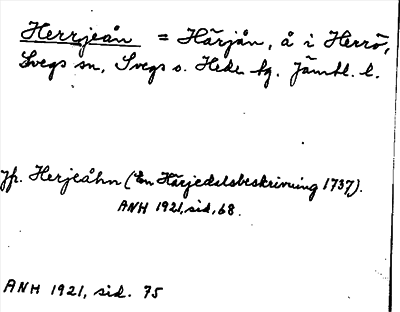 Herrjeån = Härjån, å i Herrö,
Svegs sn, Svegs o. Hede tg. Jämtl. l.
Jfr. Herjeåhn (En Härjedalsbeskrivning 1737).
ANH 1921, sid. 68.
ANH 1921, sid. 75